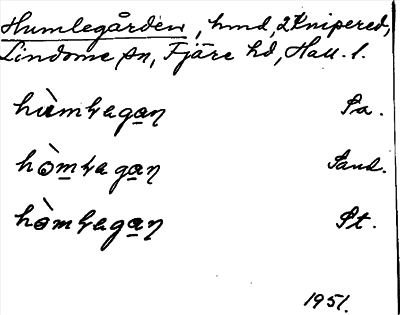 Humlegården, hmd, 2 Knipered,
Lindome sn, Fjäre hd, Hall. l.
hùmɬagan̩ Pa.
hòm̲ɬagan̩ Sand.
hə̀mɬagan̩ Pt.
1951.